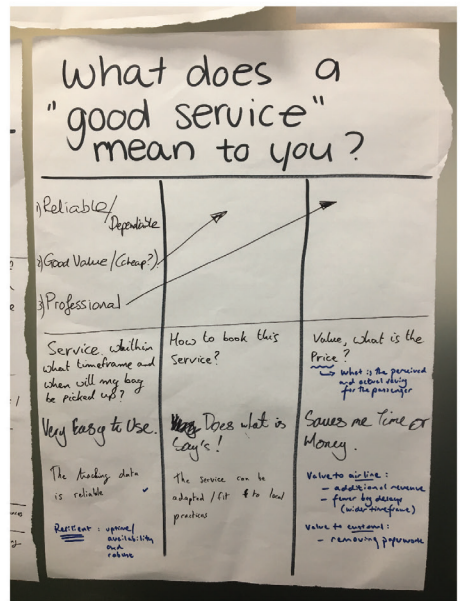 What does a
"good service"
mean to you?
1) Reliable/
Dependable
2) Good Value/(Cheap?)
3) Professional
Service within
what timeframe and
when will my bag
be picked up?
Very Easy to Use.
The tracking data
is reliable ✓
Resilient : uptime/
availability
and
robust
How to book this
Service?
Does what is
say's!
The service can be
adapted / fit to local
practices
Value, what is the
Price?
What is the perceived
and actual saving
for the passenger
Saves me Time or
Money.
Value to airline :
- additional revenue
- fewer bag delays
(wider timeframe)
Value to customs :
- removing paperwork